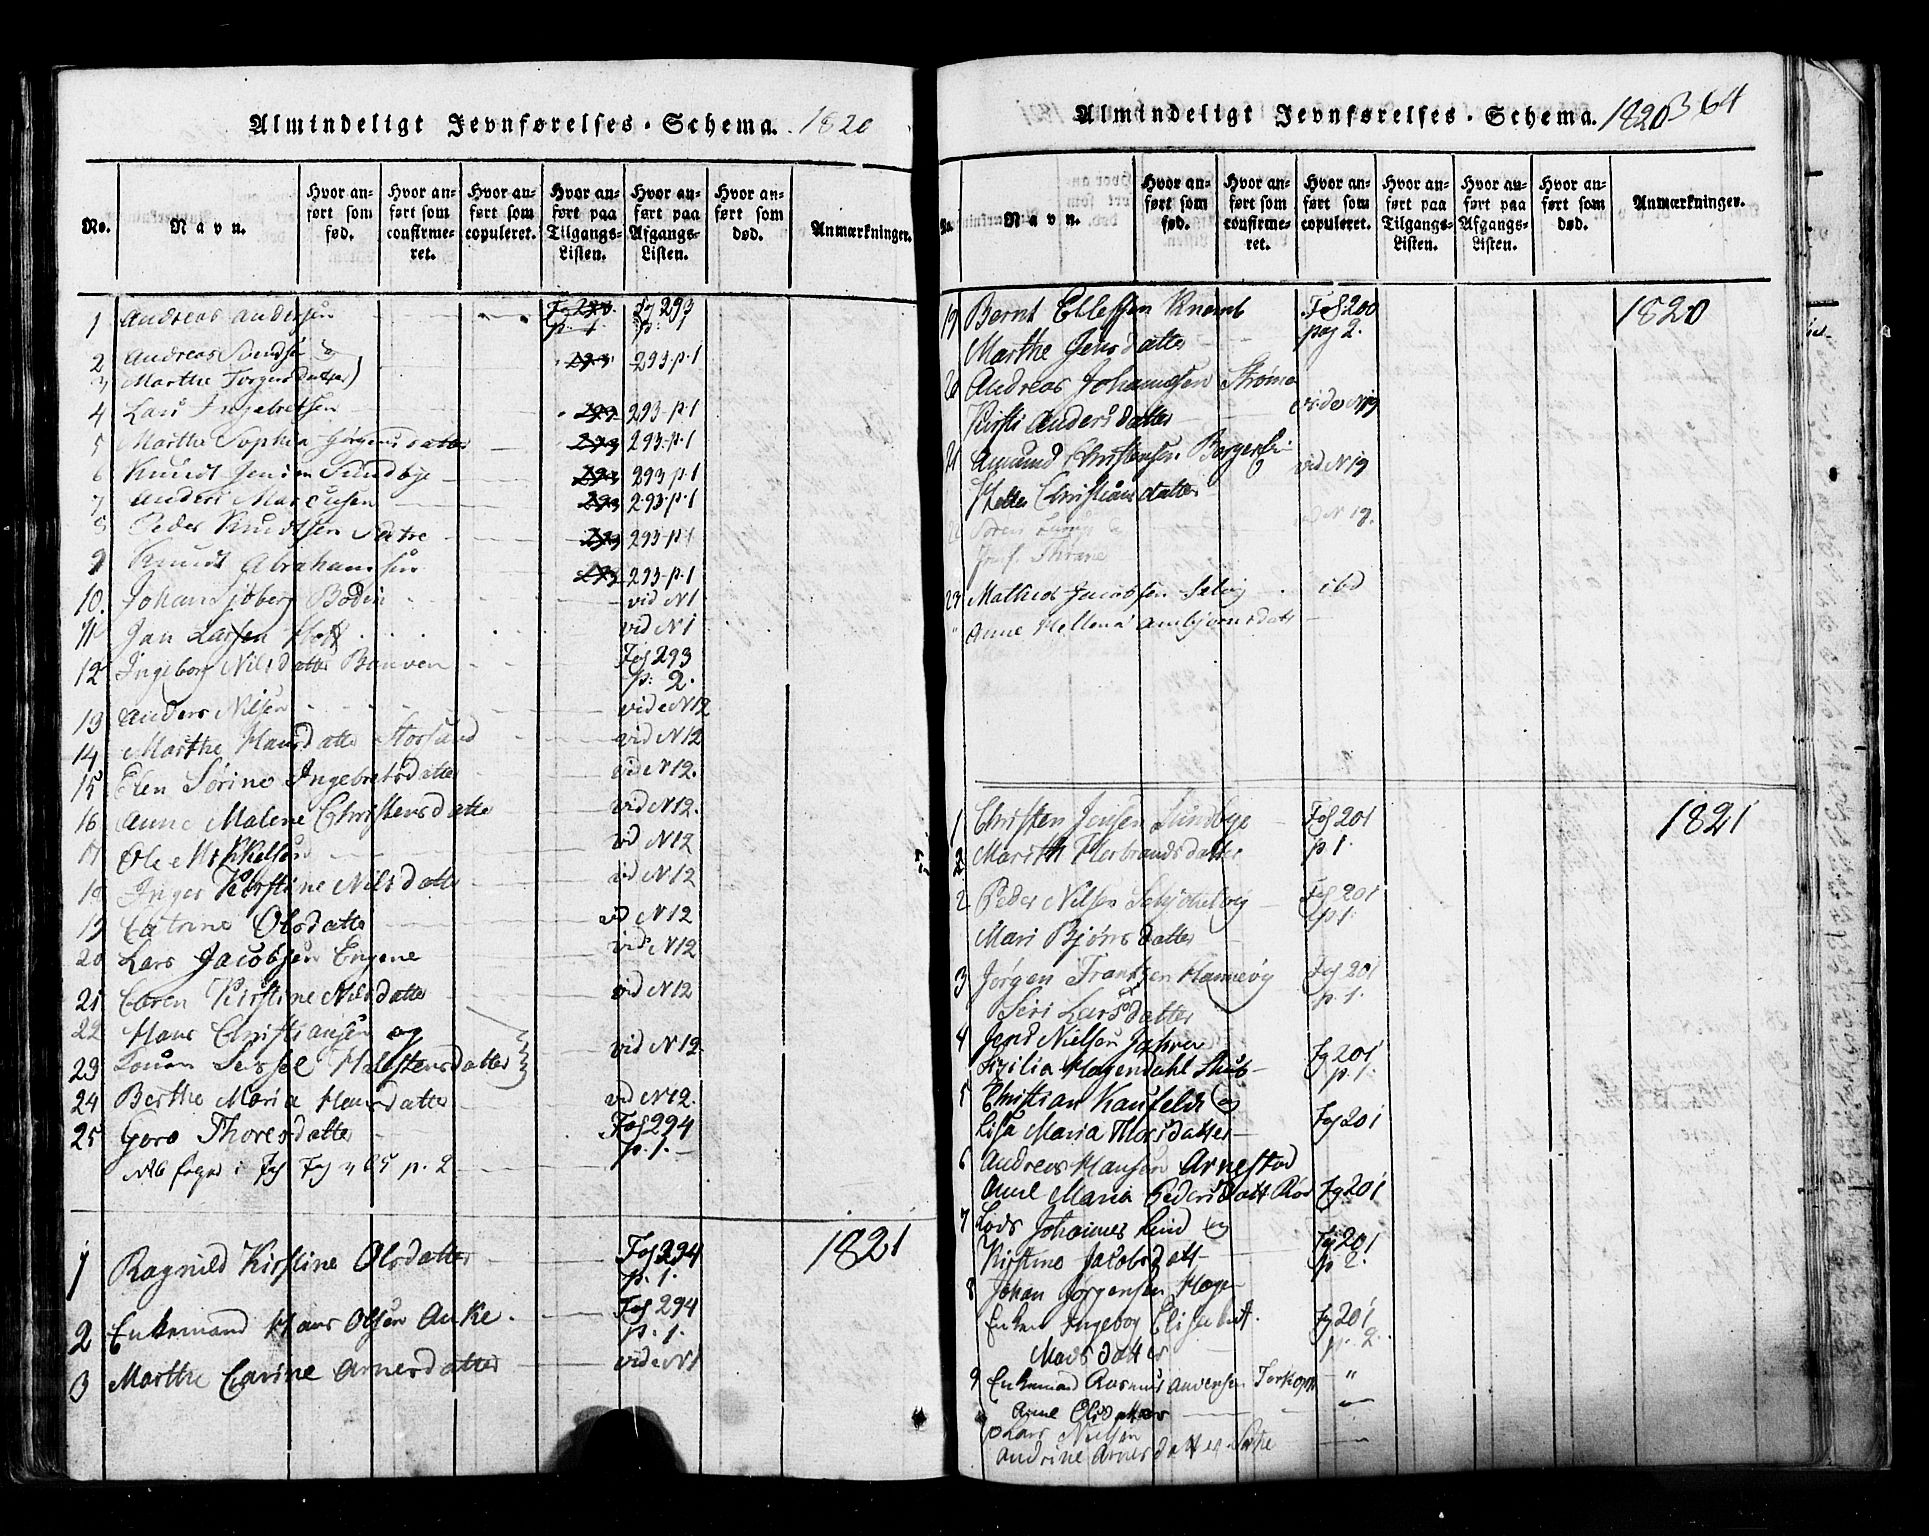 Almindeligt Jevnførelses-Schema. 1820
No. Navn. Hvor anført som fød. Hvor anført som confirmeret. Hvor anført som copuleret. Hvor anført paa Tilgangs-Listen. Hvor anført paa Afgangs-Listen. Hvor anført som død. Anmærkninger.
1 Andreas Andersen Fog 293 p. 1
2 Andreas og 293 p. 1
3 Marthe Torgersdatter
4 Lars Ingebretsen 293 p. 1
5 Marthe Sophia Jørgensdatter 293 p. 1
6 Knudt Jensen Sundbye 293 p. 1
7 Anders Marcusen 293 p. 1
8 Peder Knudtsen Sætre 293 p. 1
9 Knudt Abrahamsen 293 p. 1
10. Johan Sjøberg Bodin vid N 1
11 Jan Larsen vid N 1
12 Ingeborg Nilsdatter Fog 293 p: 2.
13 Anders Nilsen vid N 12
14 Marthe Hansdatter Storsund vid N 12
15 Elen Sørine Ingebretsdatter vid N 12.
16 Anne Malene Christensdatter vid N 12.
17 Ole Mikkelsen vid N 12
18 Inger Kirstine Nilsdatter vid N 12
19 Catrine Olsdatter vid N 12
20 Lars Jacobsen Engene vid N 12
21 Caren Kirstine Nilsdatter vid N 12
22 Hans Christiansen og
23 Konen Sissel Halstensdatter vid N 12
24 Berthe Maria Hansdatter vid N 12.
25 Goro Thoresdatter Fog 294 p. 1.
1821
1 Ragnild Kirstine Olsdatter Fog 294 p. 1.
2 Enkemand Hans Olsen Anke Fog 294 p. 1.
3 Marthe Carine Arnesdatter vide N 1
Almindeligt Jevnførelses-Schema. 1820 364
No. Navn. Hvor anført som fød. Hvor anført som confirmeret. Hvor anført som copuleret. Hvor anført paa Tilgangs-Listen. Hvor anført paa Afgangs-Listen. Hvor anført som død. Anmærkninger.
19 Bernt Ellefsen Fog 200 1820
Marthe Jensdatter pag 2.
20 Andreas Johannesen
Kirsti Andersdatter vide N 19
21 Amund Christensen vid N 19
Christiansdatter
Søren vid N 19.
23 Mathias Jacobsen Selvig ibd
" Anne Hellena
1 Christen Jensen Sundbye Fog 201 1821
Marith Herbrandsdatter p 1.
2 Peder Nilsen Fog 201 p 1.
Mari Bjørnsdatter
3 Jørgen Frantsen Hannevig Fog 201 p. 1.
Siri Larsdatter
4 Jens Nielsen Jahren Fog 201
Sisilia Hagendahl Stub p. 1.
5 Christian Kaufeldt og
Lisa Maria Thorsdatter Fog 201
6 Andreas Hansen Arnestad
Anne Maria Pedersdatt Fog 201
7 Johannes Lind og Fog 201
Kirstine Jacobsdatt p 2.
8 Johan Jørgensen Hage
Enken Ingebog Elisabet Fog 201
Madsdatter p. 2.
9 Enkemand Rasmus Andersen Torkop "
Anne
10 Lars Nielsen
Andrine Arnesdatter Sætre